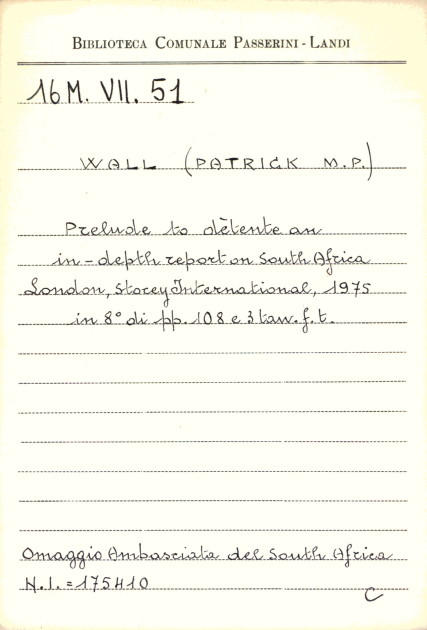 BIBLIOTECA COMUNALE PASSERINI - LANDI
16 M. VII. 51
WALL (PATRICK M.P.)
Prelude to dètente an
in-depth report on South Africa
London, Storey International, 1975
in 8° di pp. 108 e 3 tav. f.t.
Omaggio Ambasciata del South Africa
N.I. = 175410
C